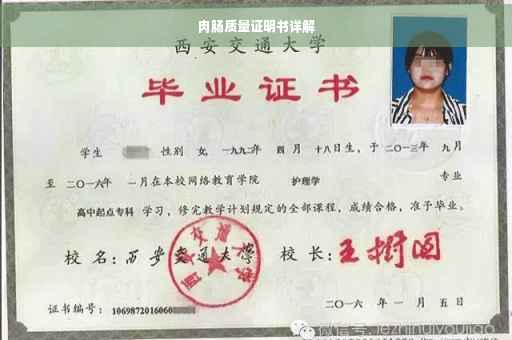 肉肠质量证明书详解
西安交通大学
毕业证书
学生 性别 女, 一九九二年 四月 十八日生, 于二〇一三年 九月
至 二〇一六年 一月在本校网络教育学院 护理学 专业
高中起点专科 学习, 修完教学计划规定的全部课程, 成绩合格, 准予毕业。
校名: 西安交通大学 校长: 王树国
西安交通大学
证书编号: 1069872016060
二〇一六年 一月五日
微信号: jezhihuiyoujiao